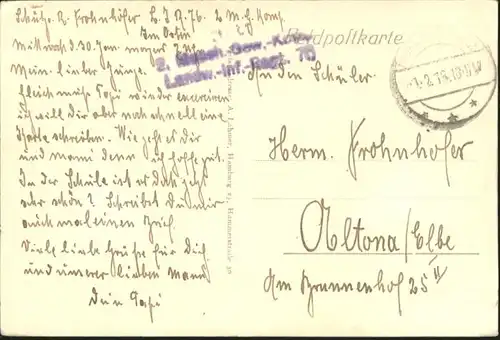 Schütze R. Frohnhöfer L.I.R. 76. 2 M. G. Komp.
Im Osten
Mittwoch d. 30. Jan. morgens 7 Uhr
Mein lieber Junge.
Gleich muß Papi wieder exerzieren
ich will dir aber noch schnell eine
Karte schreiben. Wie geht es dir
und Mami denn ich hoffe gut.
In der Schule ist es doch jetzt
sehr schön? Schreibst du mir
auch mal einen Brief.
Viele liebe Grüße für dich
und unserer lieben Mami
Dein Papi
Feldpostkarte
2. Masch.-Gew.-Komp.
Landw.-Inf.-Regt. 76
A. Lohmer, Hamburg 23, Hammerstraße 30
An den Schüler
Herm. Frohnhöfer
Altona/Elbe
Am Brunnenhof 25 II